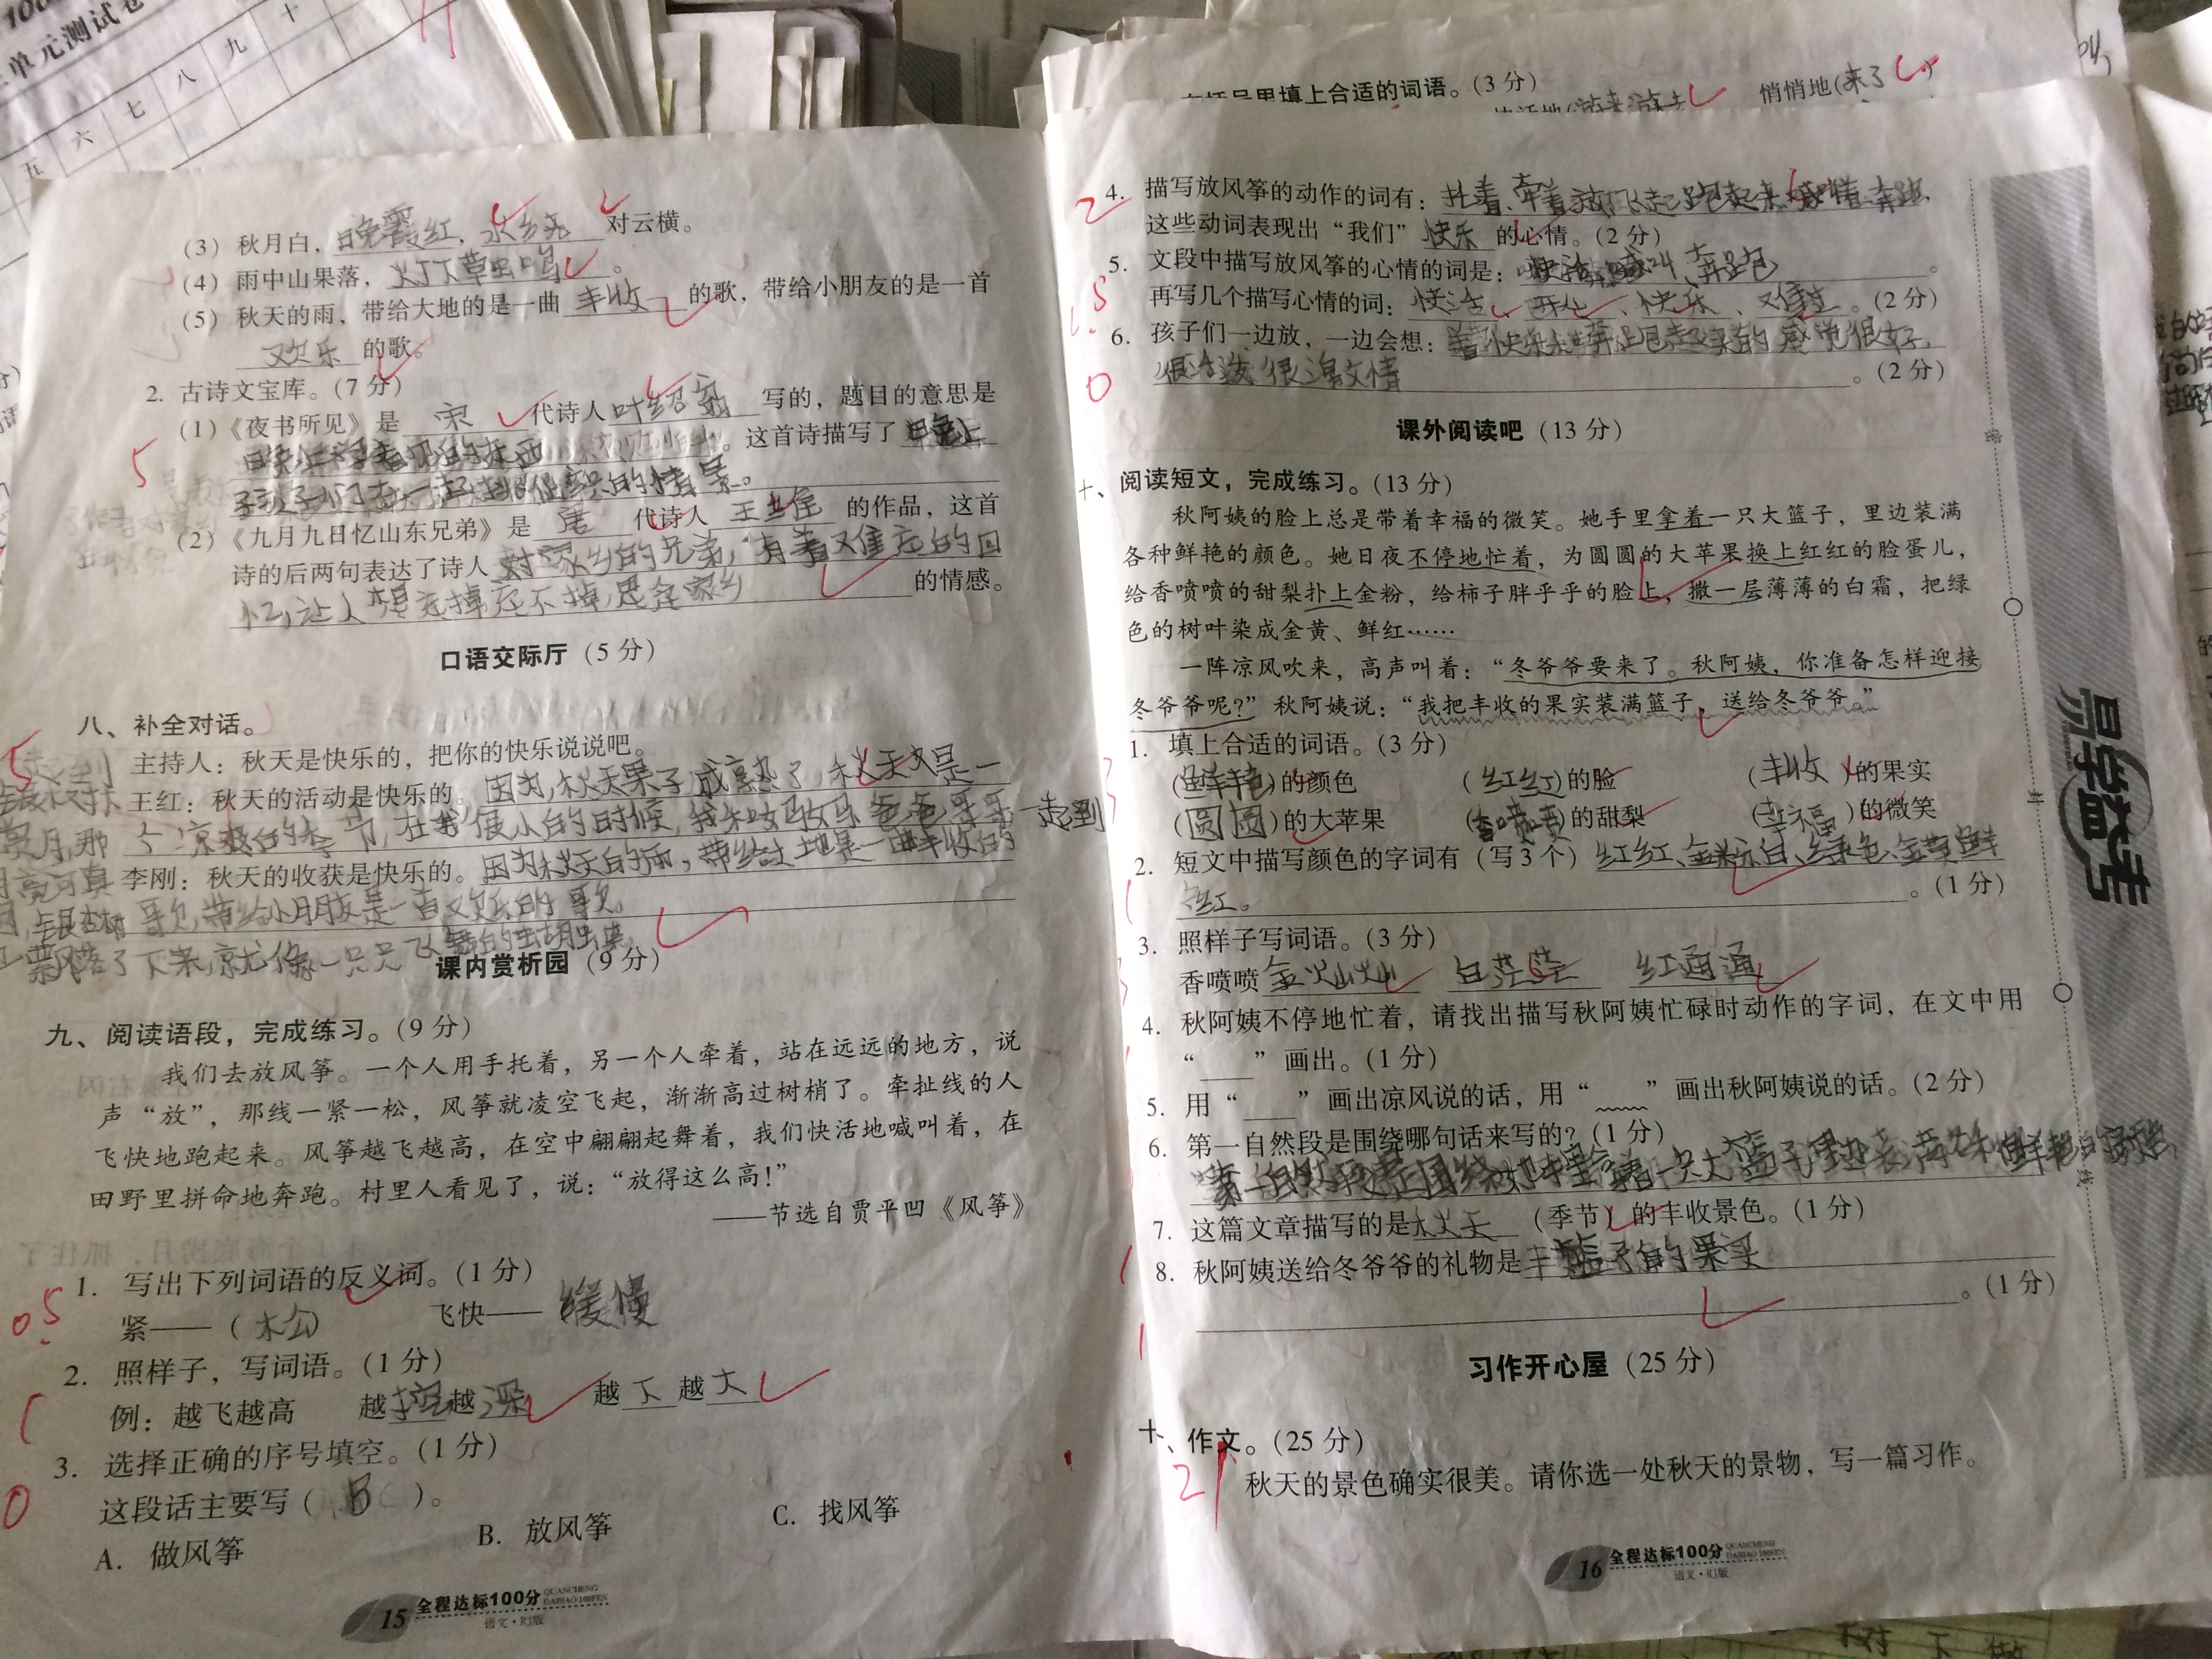 单元测试卷
五 六 七 八 九 十
(3) 秋月白，晚霞红，水乡绕对云横。
(4) 雨中山果落，灯下草虫鸣。
(5) 秋天的雨，带给大地的是一曲丰收的歌，带给小朋友的是一首
欢乐的歌。
2. 古诗文宝库。(7 分)
(1)《夜书所见》是 宋 代诗人叶绍翁 写的，题目的意思是
晚上看见的东西。这首诗描写了晚上
孩子们在一起的情景。
(2)《九月九日忆山东兄弟》是 唐 代诗人 王维 的作品，这首
诗的后两句表达了诗人对家乡的兄弟，有着难忘的回
忆，让人想忘掉忘不掉，思念家乡的情感。
口语交际厅 (5 分)
八、补全对话。
主持人：秋天是快乐的，把你的快乐说说吧。
王红：秋天的活动是快乐的。因为，秋天果子成熟了，秋天又是一
个凉爽的季节，在我很小的时候，我 爸爸 一起到
李刚：秋天的收获是快乐的。因为秋天的雨，带给大地是一曲丰收的
歌，带给小朋友是一首欢乐的歌。
飘落了下来，就像一只只飞舞的蝴蝶
课内赏析园 (9 分)
九、阅读语段，完成练习。(9 分)
我们去放风筝。一个人用手托着，另一个人牵着，站在远远的地方，说
声“放”，那线一紧一松，风筝就凌空飞起，渐渐高过树梢了。牵扯线的人
飞快地跑起来。风筝越飞越高，在空中翩翩起舞着，我们快活地喊叫着，在
田野里拼命地奔跑。村里人看见了，说：“放得这么高！”
——节选自贾平凹《风筝》
1. 写出下列词语的反义词。(1 分)
紧——（松） 飞快——缓慢
2. 照样子，写词语。(1 分)
例：越飞越高 越挖越深 越下越大
3. 选择正确的序号填空。(1 分)
这段话主要写（ B ）。
A. 做风筝 B. 放风筝 C. 找风筝
15 全程达标100分 QUANCHENG DABIAO 100FEN
语文·RJ版
在括号里填上合适的词语。(3 分)
快活地(游来游去 悄悄地(来了)
4. 描写放风筝的动作的词有：托着、牵着 飞起 跑起来 奔跑，
这些动词表现出“我们” 快乐 的心情。(2 分)
5. 文段中描写放风筝的心情的词是：快活 喊叫 奔跑。
再写几个描写心情的词：快活、开心、快乐、难过。(2 分)
6. 孩子们一边放，一边会想：奔跑起来的感觉很好，
很 很 。(2 分)
课外阅读吧 (13 分)
十、阅读短文，完成练习。(13 分)
秋阿姨的脸上总是带着幸福的微笑。她手里拿着一只大篮子，里边装满
各种鲜艳的颜色。她日夜不停地忙着，为圆圆的大苹果换上红红的脸蛋儿，
给香喷喷的甜梨扑上金粉，给柿子胖乎乎的脸上，撒一层薄薄的白霜，把绿
色的树叶染成金黄、鲜红……
一阵凉风吹来，高声叫着：“冬爷爷要来了。秋阿姨，你准备怎样迎接
冬爷爷呢？”秋阿姨说：“我把丰收的果实装满篮子，送给冬爷爷。”
1. 填上合适的词语。(3 分)
(鲜艳)的颜色 (红红)的脸 (丰收)的果实
(圆圆)的大苹果 (香喷喷)的甜梨 (幸福)的微笑
2. 短文中描写颜色的字词有（写 3 个）红红、金粉、白、绿色、金黄、鲜
红。。(1 分)
3. 照样子写词语。(3 分)
香喷喷 金灿灿 白茫茫 红通通
4. 秋阿姨不停地忙着，请找出描写秋阿姨忙碌时动作的字词，在文中用
“ ”画出。(1 分)
5. 用“ ”画出凉风说的话，用“ ”画出秋阿姨说的话。(2 分)
6. 第一自然段是围绕哪句话来写的？(1 分)
第一自然段是围绕她手里拿着一只大篮子里边装满各种鲜艳的颜色
7. 这篇文章描写的是秋天（季节）的丰收景色。(1 分)
8. 秋阿姨送给冬爷爷的礼物是丰 篮子的果实
。(1 分)
习作开心屋 (25 分)
十一、作文。(25 分)
21
秋天的景色确实很美。请你选一处秋天的景物，写一篇习作。
16 全程达标100分 QUANCHENG DABIAO 100FEN
语文·RJ版
易学益考
线